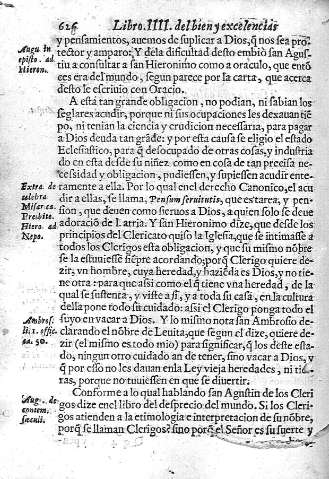 626 Libro.IIII. del bien y excelencias
y pensamientos, auemos de suplicar a Dios, q̃ nos sea pro
tector y amparo: Y dela dificultad desto embiò san Agus-
tiu a consultar a san Hieronimo como a oraculo, que ento
ces era del mundo, segun parece por la carta, que acerca
desto le escriuio con Oracio.
A està tan grande obligacion, no podian, ni sabian los
seglares acudir, porque ni sus ocupaciones les dexauan tiẽ
po, ni tenian la ciencia y erudicion necessaria, para pagar
a Dios deuda tan grãde: y por esta causa se eligio el estado
Eclesiastico, para q̃ desocupado de otras cosas, y industria
do en esta desde su niñez como en cosa de tan precisa ne-
cessidad y obligacion, pudiessen, y supiessen acudir ente-
ramente a ella. Por lo qual en el derecho Canonico, el acu
dir a ellas, se llama, Pensum seruitutis, que es tarea, y pen-
sion, que deuen como sieruos a Dios, a quien solo se deue
adoraciõ de Latria. Y san Hieronimo dize, que desde los
principios del Clericato quiso la Iglesia, que se intimasse a
todos los Clerigos esta obligacion, y que su mismo nõbre
se la estuuiesse siẽpre acordando; porq̃ Clerigo quiere de-
zir, vn hombre, cuya heredad, y haziẽda es Dios, y no tie-
ne otra: para que assi como el q̃ tiene vna heredad, de la
qual se sustenta, y viste a si, y a toda su casa, en la cultura
della pone todo su cuidado: assi el Clerigo ponga todo el
suyo en vacar a Dios. Y lo mismo nota san Ambrosio de-
clarando el nõbre de Leuita, que segun el dize, quiere de-
zir (el mismo es todo mio) para significar, q̃ los deste esta-
do, ningun otro cuidado an de tener, sino vacar a Dios, y
q̃ por esso no les dauan en la Ley vieja heredades, ni tie-
ras, porque no tuuiessen en que se diuertir.
Conforme a lo qual hablando san Agustin de los Cleri
gos dize en el libro del desprecio del mundo. Si los Cleri-
gos atienden a la etimologia e interpretacion de su nõbre,
porq̃ se llaman Clerigos? sino porq̃ el Señor es su suerte y
Augu. in
episto. ad
Hieron.
Extra. de
celebra
Missar. ex
Presbite.
Hiero. ad
Nepo.
Ambros.
li. 1. offic.
ca. 50.
Aug. de
contem.
sæculi.